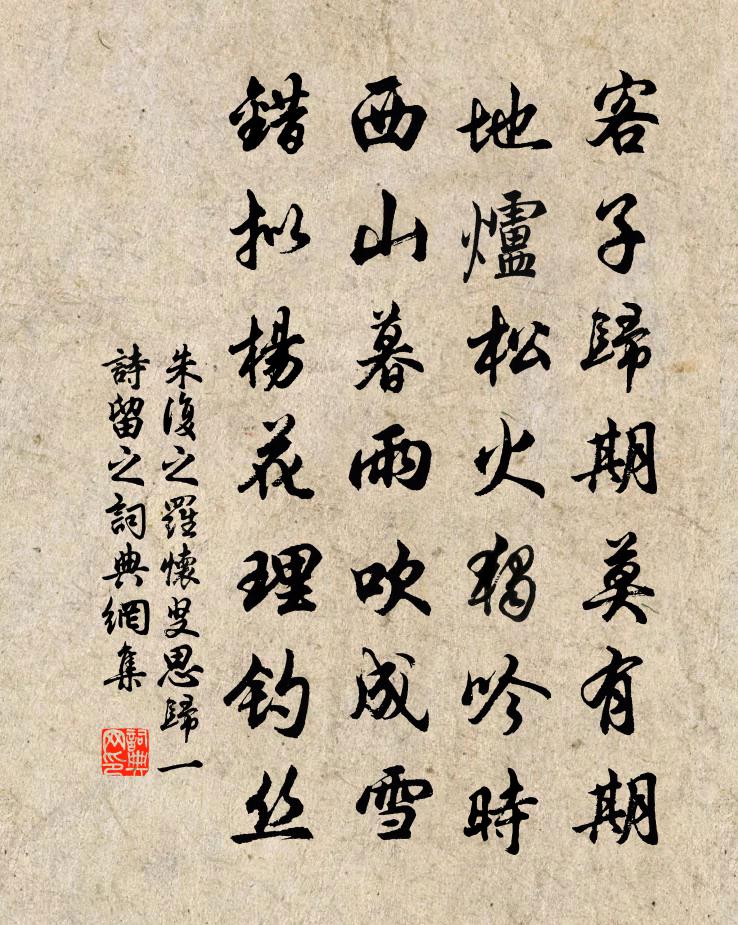 客子歸期莫有期
地爐松火獨吟時
西山暮雨吹成雪
錯擬楊花理釣絲
朱復之羅懷叟思歸一
詩留之詞典網集
詞典網印